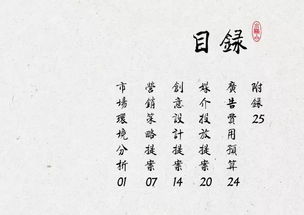 目錄
市場環境分析 01
營銷策略提案 07
創意設計提案 14
媒介投放提案 20
廣告費用預算 24
附錄 25